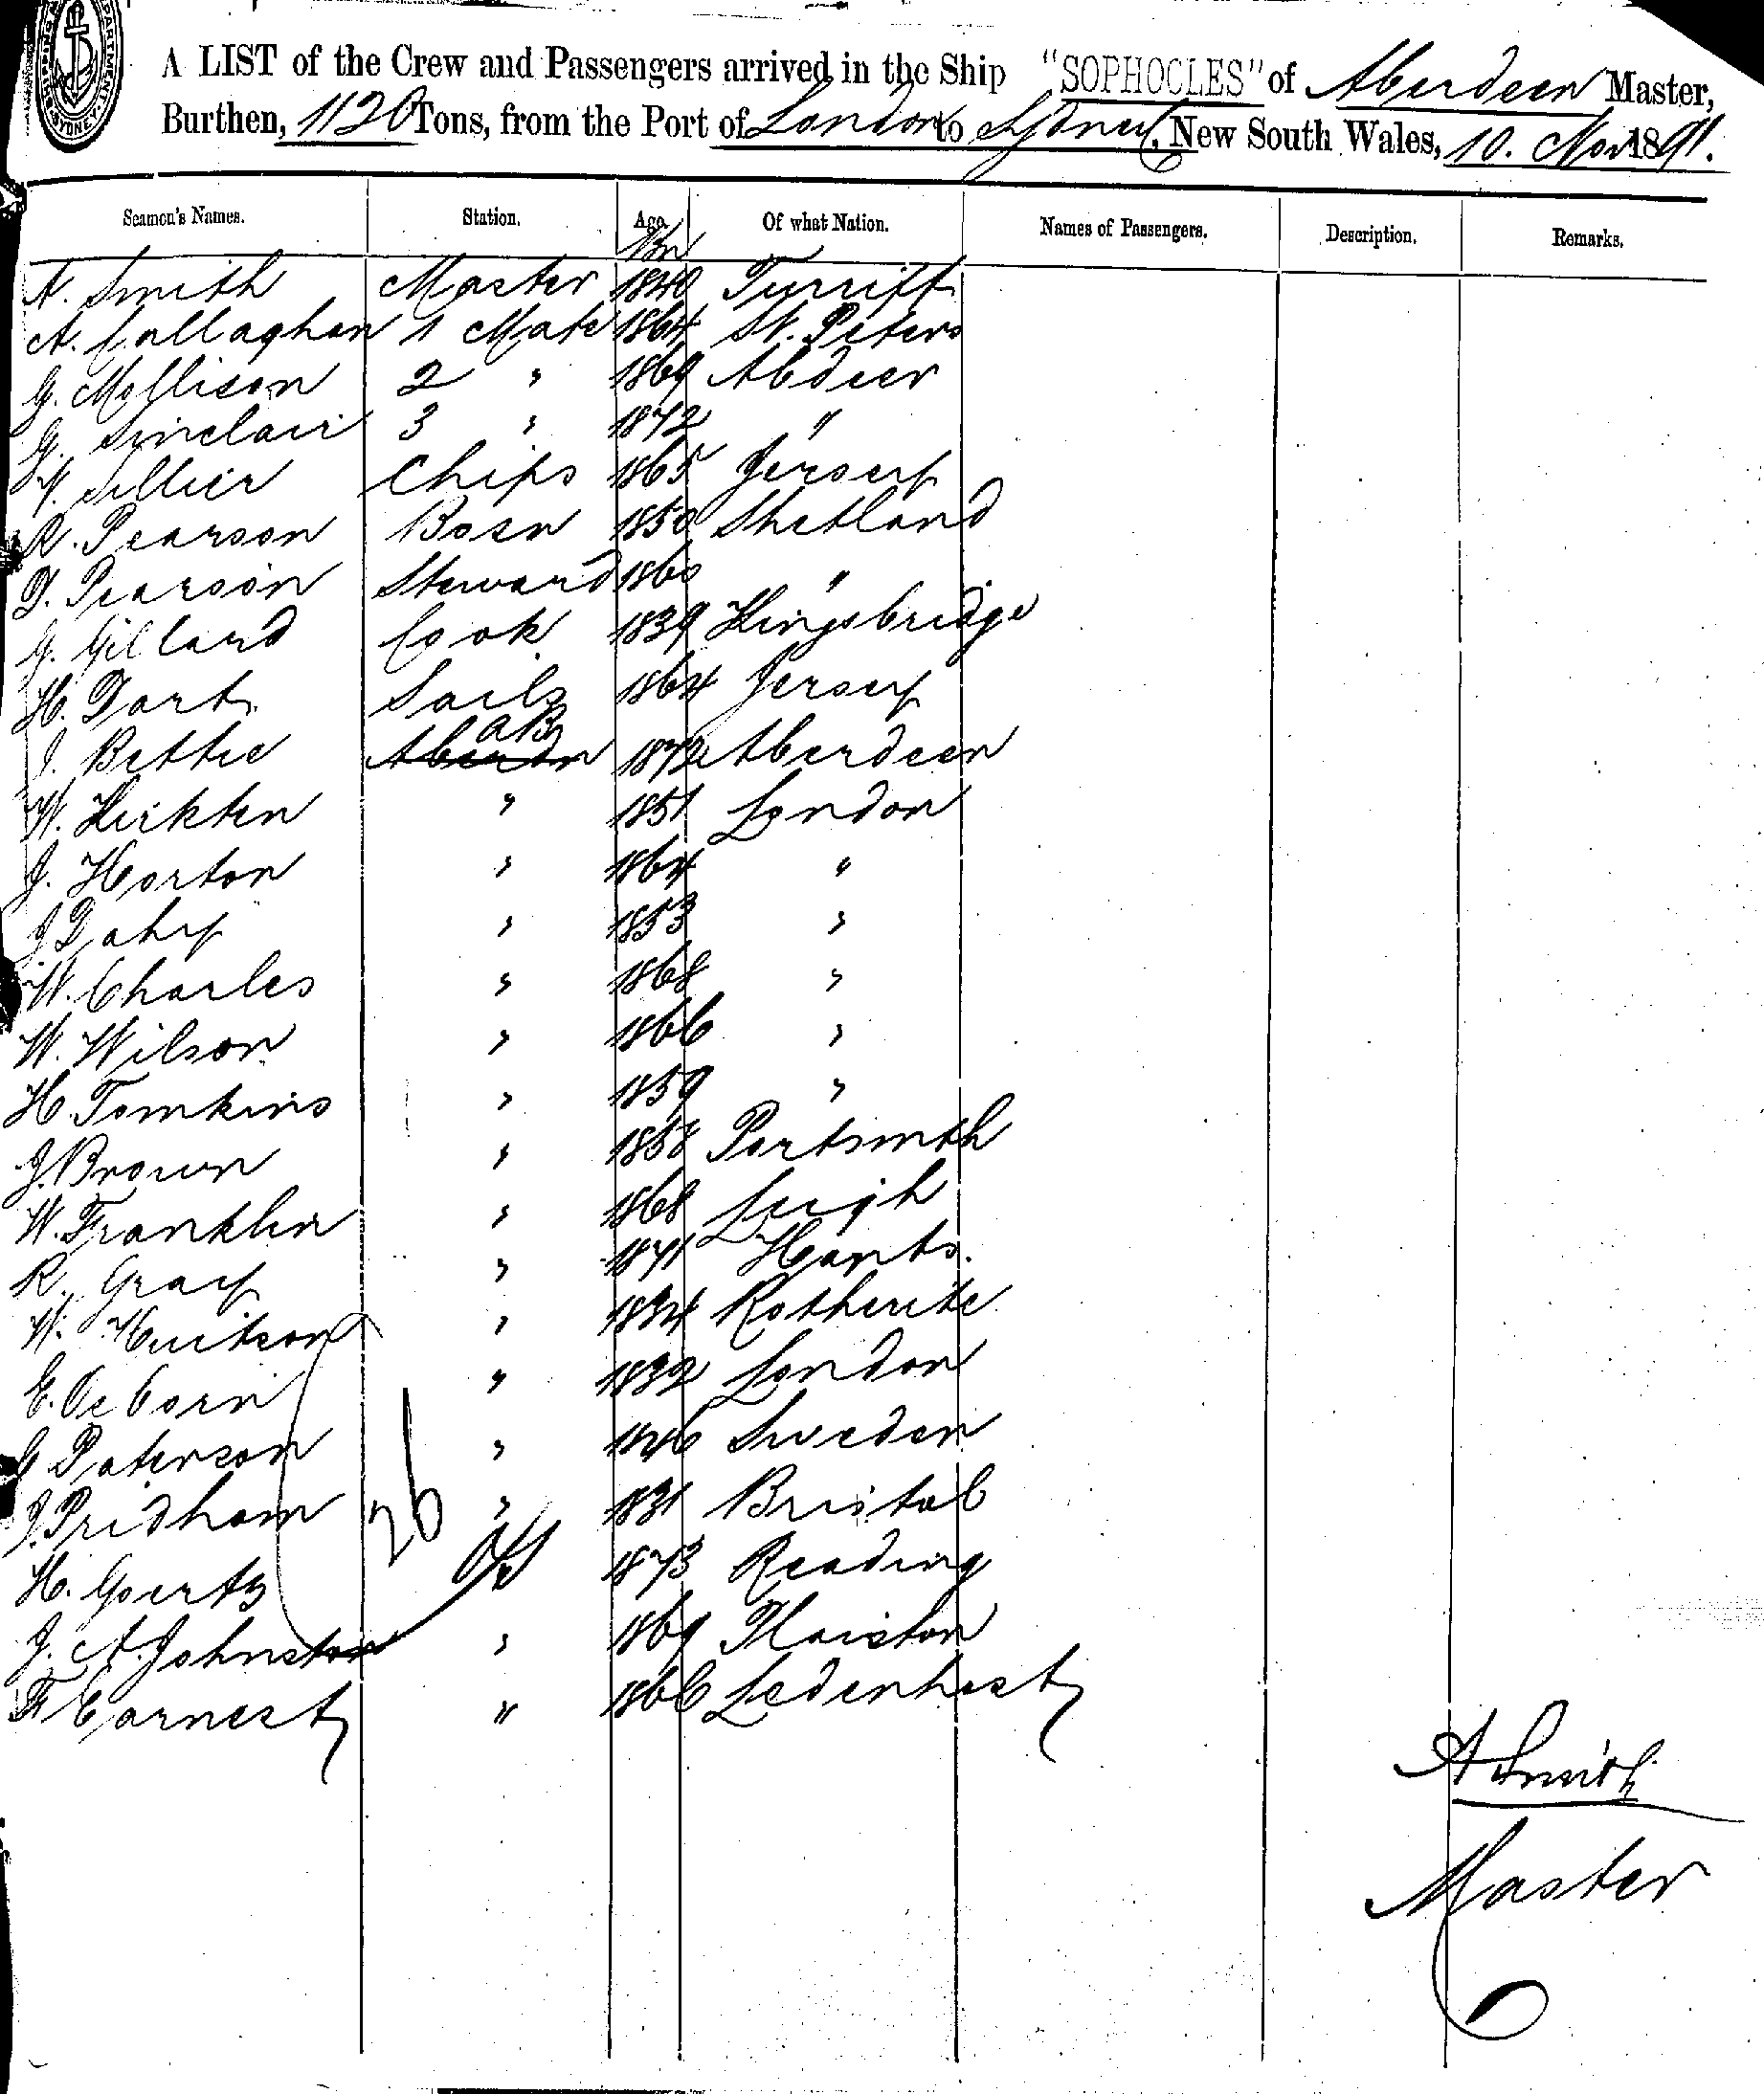 A LIST of the Crew and Passengers arrived in the Ship "SOPHOCLES" of Aberdeen Master,
Burthen, 1120 Tons, from the Port of London to Sydney, New South Wales, 10. Nov 1891.
Seamen's Names. Station. Age. Of what Nation. Names of Passengers. Description. Remarks.
Bn
A. Smith Master 1840 Turriff
A. Callaghan 1 Mate 1864 St. Peters
G. Mollison 2 " 1869 Abdeen
G. Sinclair 3 " 1872 "
Sellier Chips 1865 Jersey
R. Pearson Bosn 1850 Shetland
T. Pearson Steward 1860 "
G. Gillard Cook 1839 Kingsbridge
H. Dart Sails 1864 Jersey
AB
J. Bettie Aberdn 1872 Aberdeen
W. Kirkten " 1851 London
J. Horton " 1864 "
J Dahy " 1853 "
W. Charles " 1868 "
W. Wilson " 1866 "
H. Tomkins " 1859 "
J. Brown " 1858 Portsmth
W. Franklin " 1868 Leigh
R. Gray " 1871 Hants.
W. Huitson " 1834 Rotherite
E. Osborn " 1832 London
C Paterson " 1846 Sweden
J. Pridham " 1831 Bristol
26
H. Goertz O/S 1873 Reading
J. A. Johnston " 1869 Plaistow
F Earnest " 1866
A Smith
Master